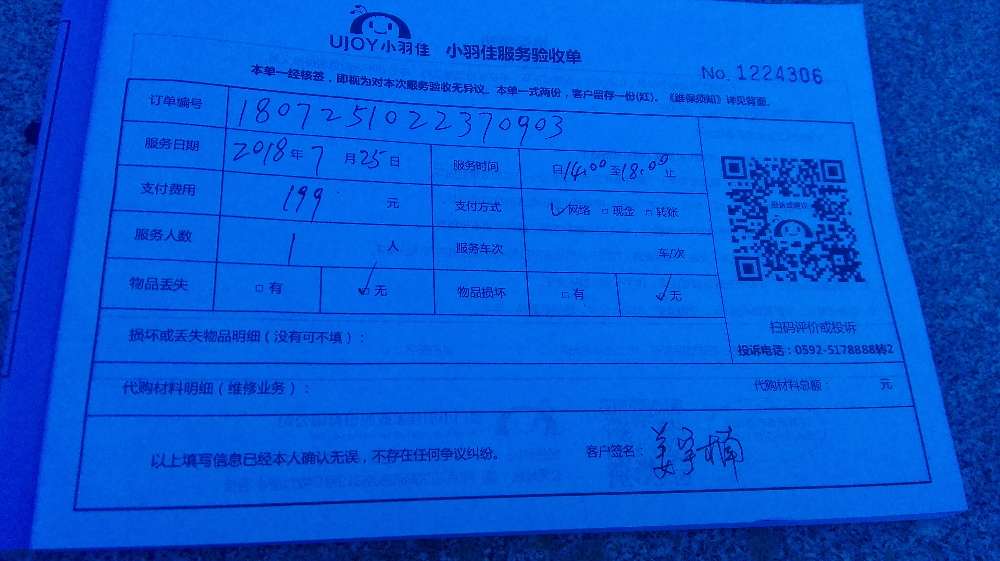 UJOY小羽佳 小羽佳服务验收单
No. 1224306
本单一经核签，即视为对本次服务验收无异议。本单一式两份，客户留存一份(红)。《维保须知》详见背面。
订单编号 1807251022370903
服务日期 2018年7月25日 服务时间 自14:00至18:00止
支付费用 199 元 支付方式 ☑网络 □现金 □转账
服务人数 1 人 服务车次 车/次
物品丢失 □有 ☑无 物品损坏 □有 ☑无
扫码评价或投诉
损坏或丢失物品明细（没有可不填）：
投诉电话：0592-5178888转2
代购材料明细（维修业务）： 代购材料总额： 元
以上填写信息已经本人确认无误，不存在任何争议纠纷。 客户签名：